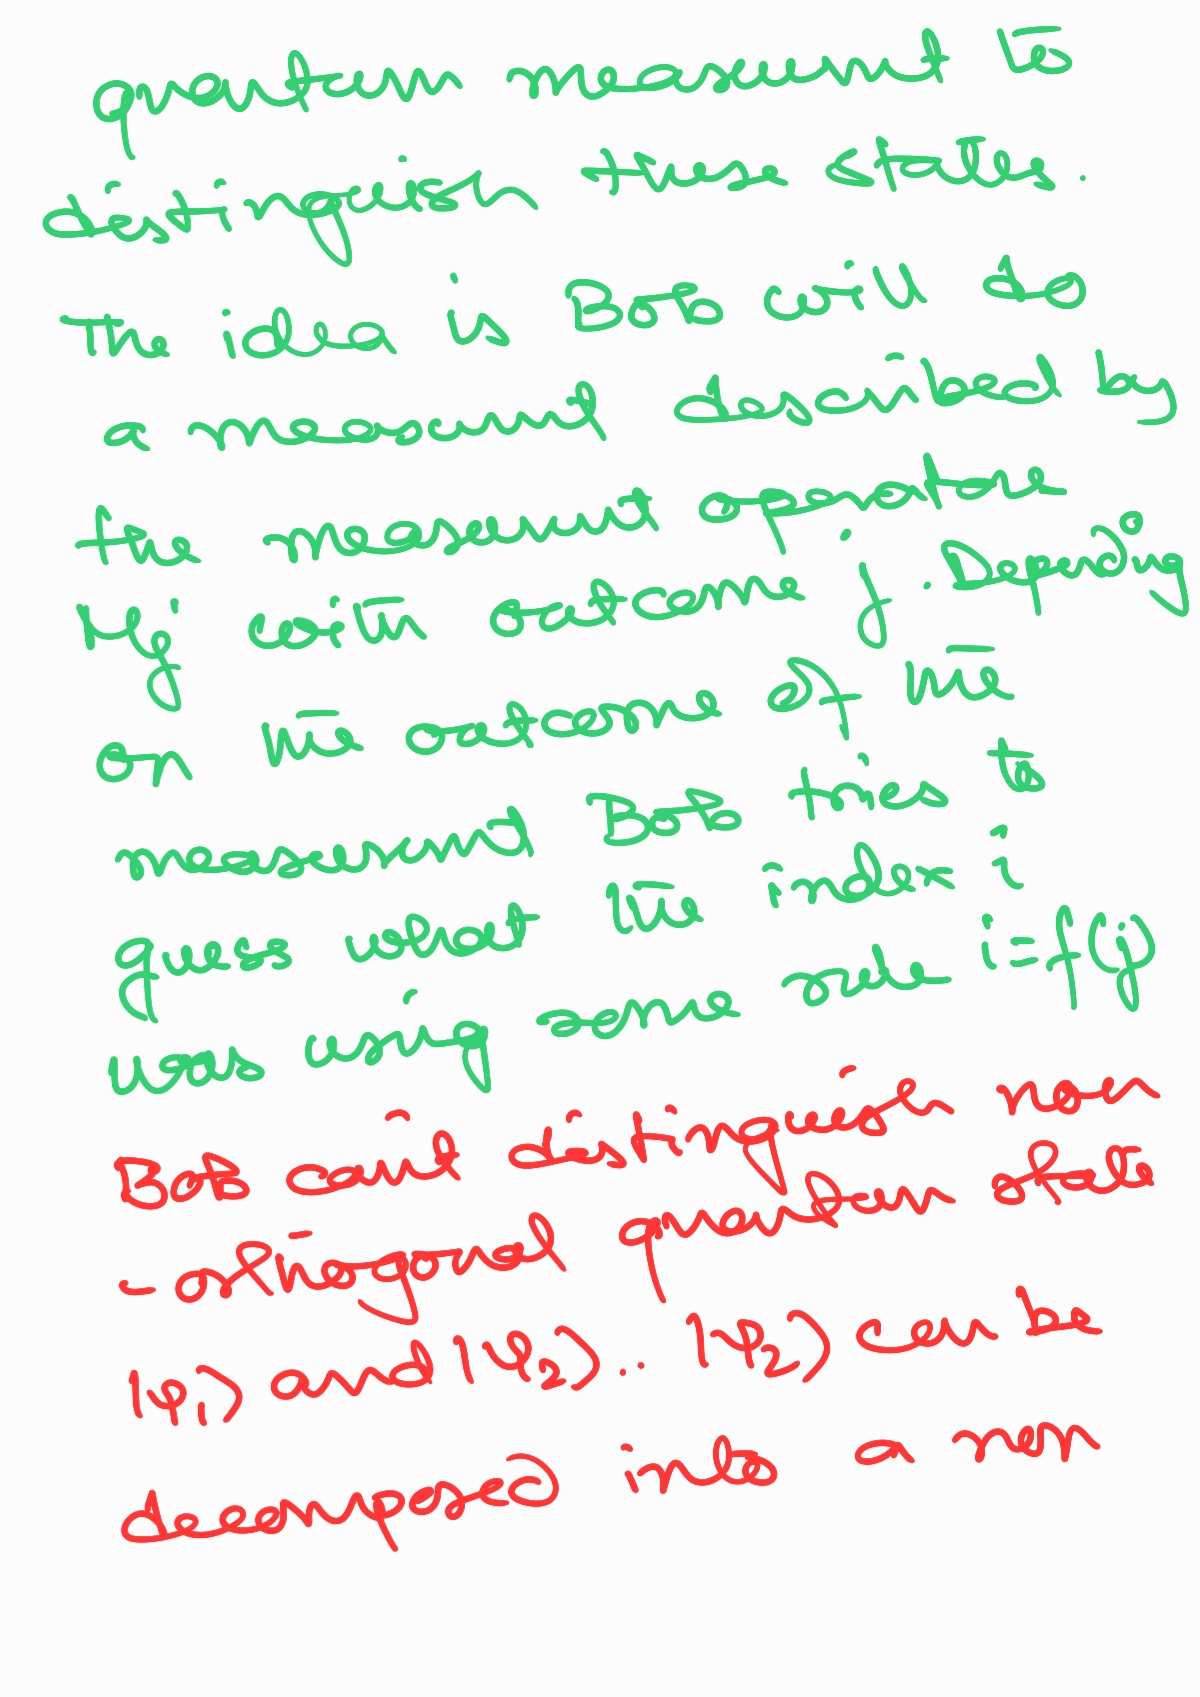 quantum measurement to
distinguish these states.
The idea is Bob will do
a measurement described by
the measurement operators
Mj with outcome j. Depending
on the outcome of the
measurement Bob tries to
guess what the index i
was using some rule i=f(j)
Bob can't distinguish non
-orthogonal quantum state
|φ₁⟩ and |φ₂⟩.. |φ₂⟩ can be
decomposed into a non